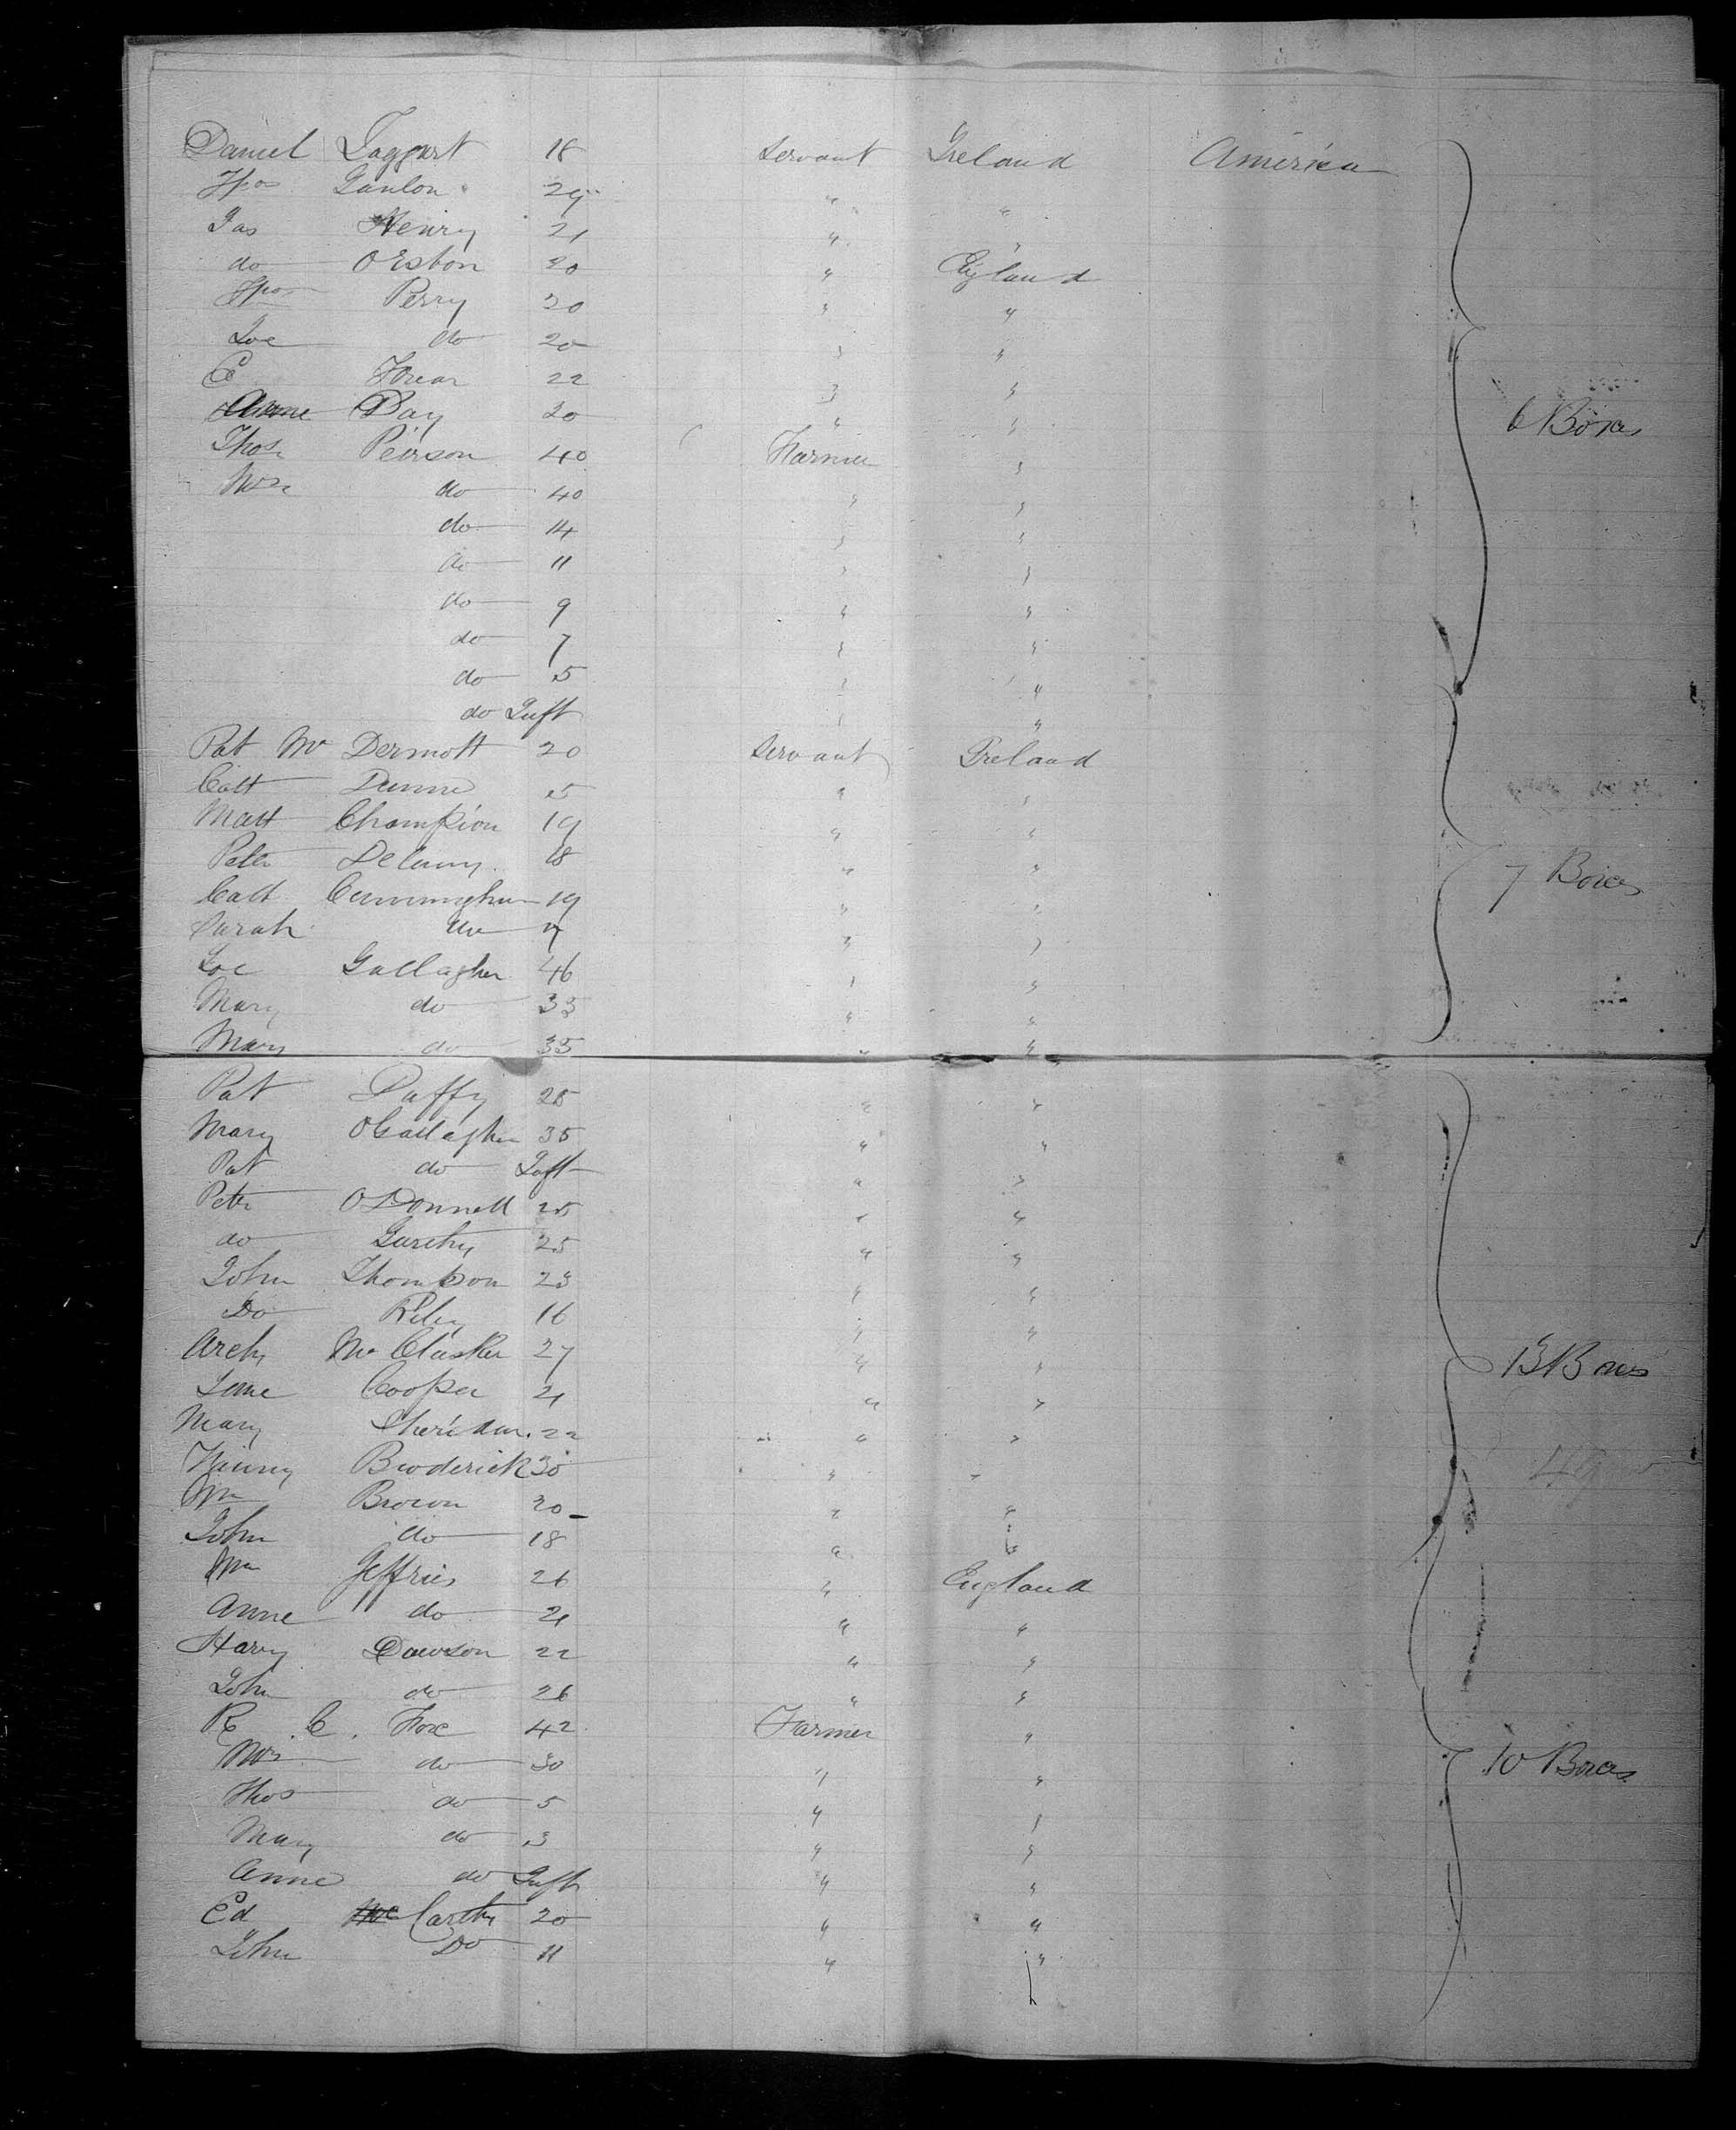 Daniel Taggart 18 servant Ireland America
Thos Ganlon 29 " "
Jas Henry 21 " "
do OEsbon 20 " England
Thos Perry 20 " "
Joe do 20 " "
E 22 " "
Anne Day 20 " "
Thos Peirson 40 Farmer " 6 Boxes
Mrs do 40 " "
do 14 " "
do 11 " "
do 9 " "
do 7 " "
do 5 " "
do Inft " "
Pat Mc Dermott 20 servant Ireland
Cath Dunne " "
Matt Champion 19 " "
Peter Delany 18 " "
Cath Cunningham 19 " " 7 Boxes
Sarah do " "
Joe Gallagher 46 " "
Mary do 33 " "
Mary do 35 " "
Pat Duffy 25 " "
Mary OGallagher 35 " "
Pat do Inft " "
Peter ODonnell 25 " "
do 25 " "
John Thompson 23 " "
Do Riley 16 " "
Archy Mc Clusker 27 " " 13 Boxes
Jane Cooper 21 " "
Mary Sheridan 22 " "
Broderick 30 " "
Wm Brown 30 " "
John do 18 " "
Wm Jeffries 26 " England
Anne do 21 " "
Harry Dawson 22 " "
John do 26 " "
R C. Fox 42 Farmer "
Mrs do 30 " " 10 Boxes
Thos do 5 " "
Mary do 3 " "
Anne do Inft " "
Ed Mc Carthy 20 " "
John Do 11 " "